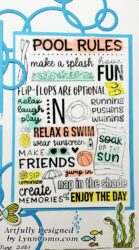 POOL RULES
make a splash
have
FUN
FLIP-FLOPS ARE OPTIONAL
relax
laugh
play
NO
RUNNING
RELAX & SWIM
wear sunscreen
MAKE
FRIENDS
soak
up
the
SUN
SIP
lemonade
jump in
nap in the shade
CREATE
MEMORIES
ENJOY THE DAY
Artfully Designed
by Lynnpomo.com
Aug 2021